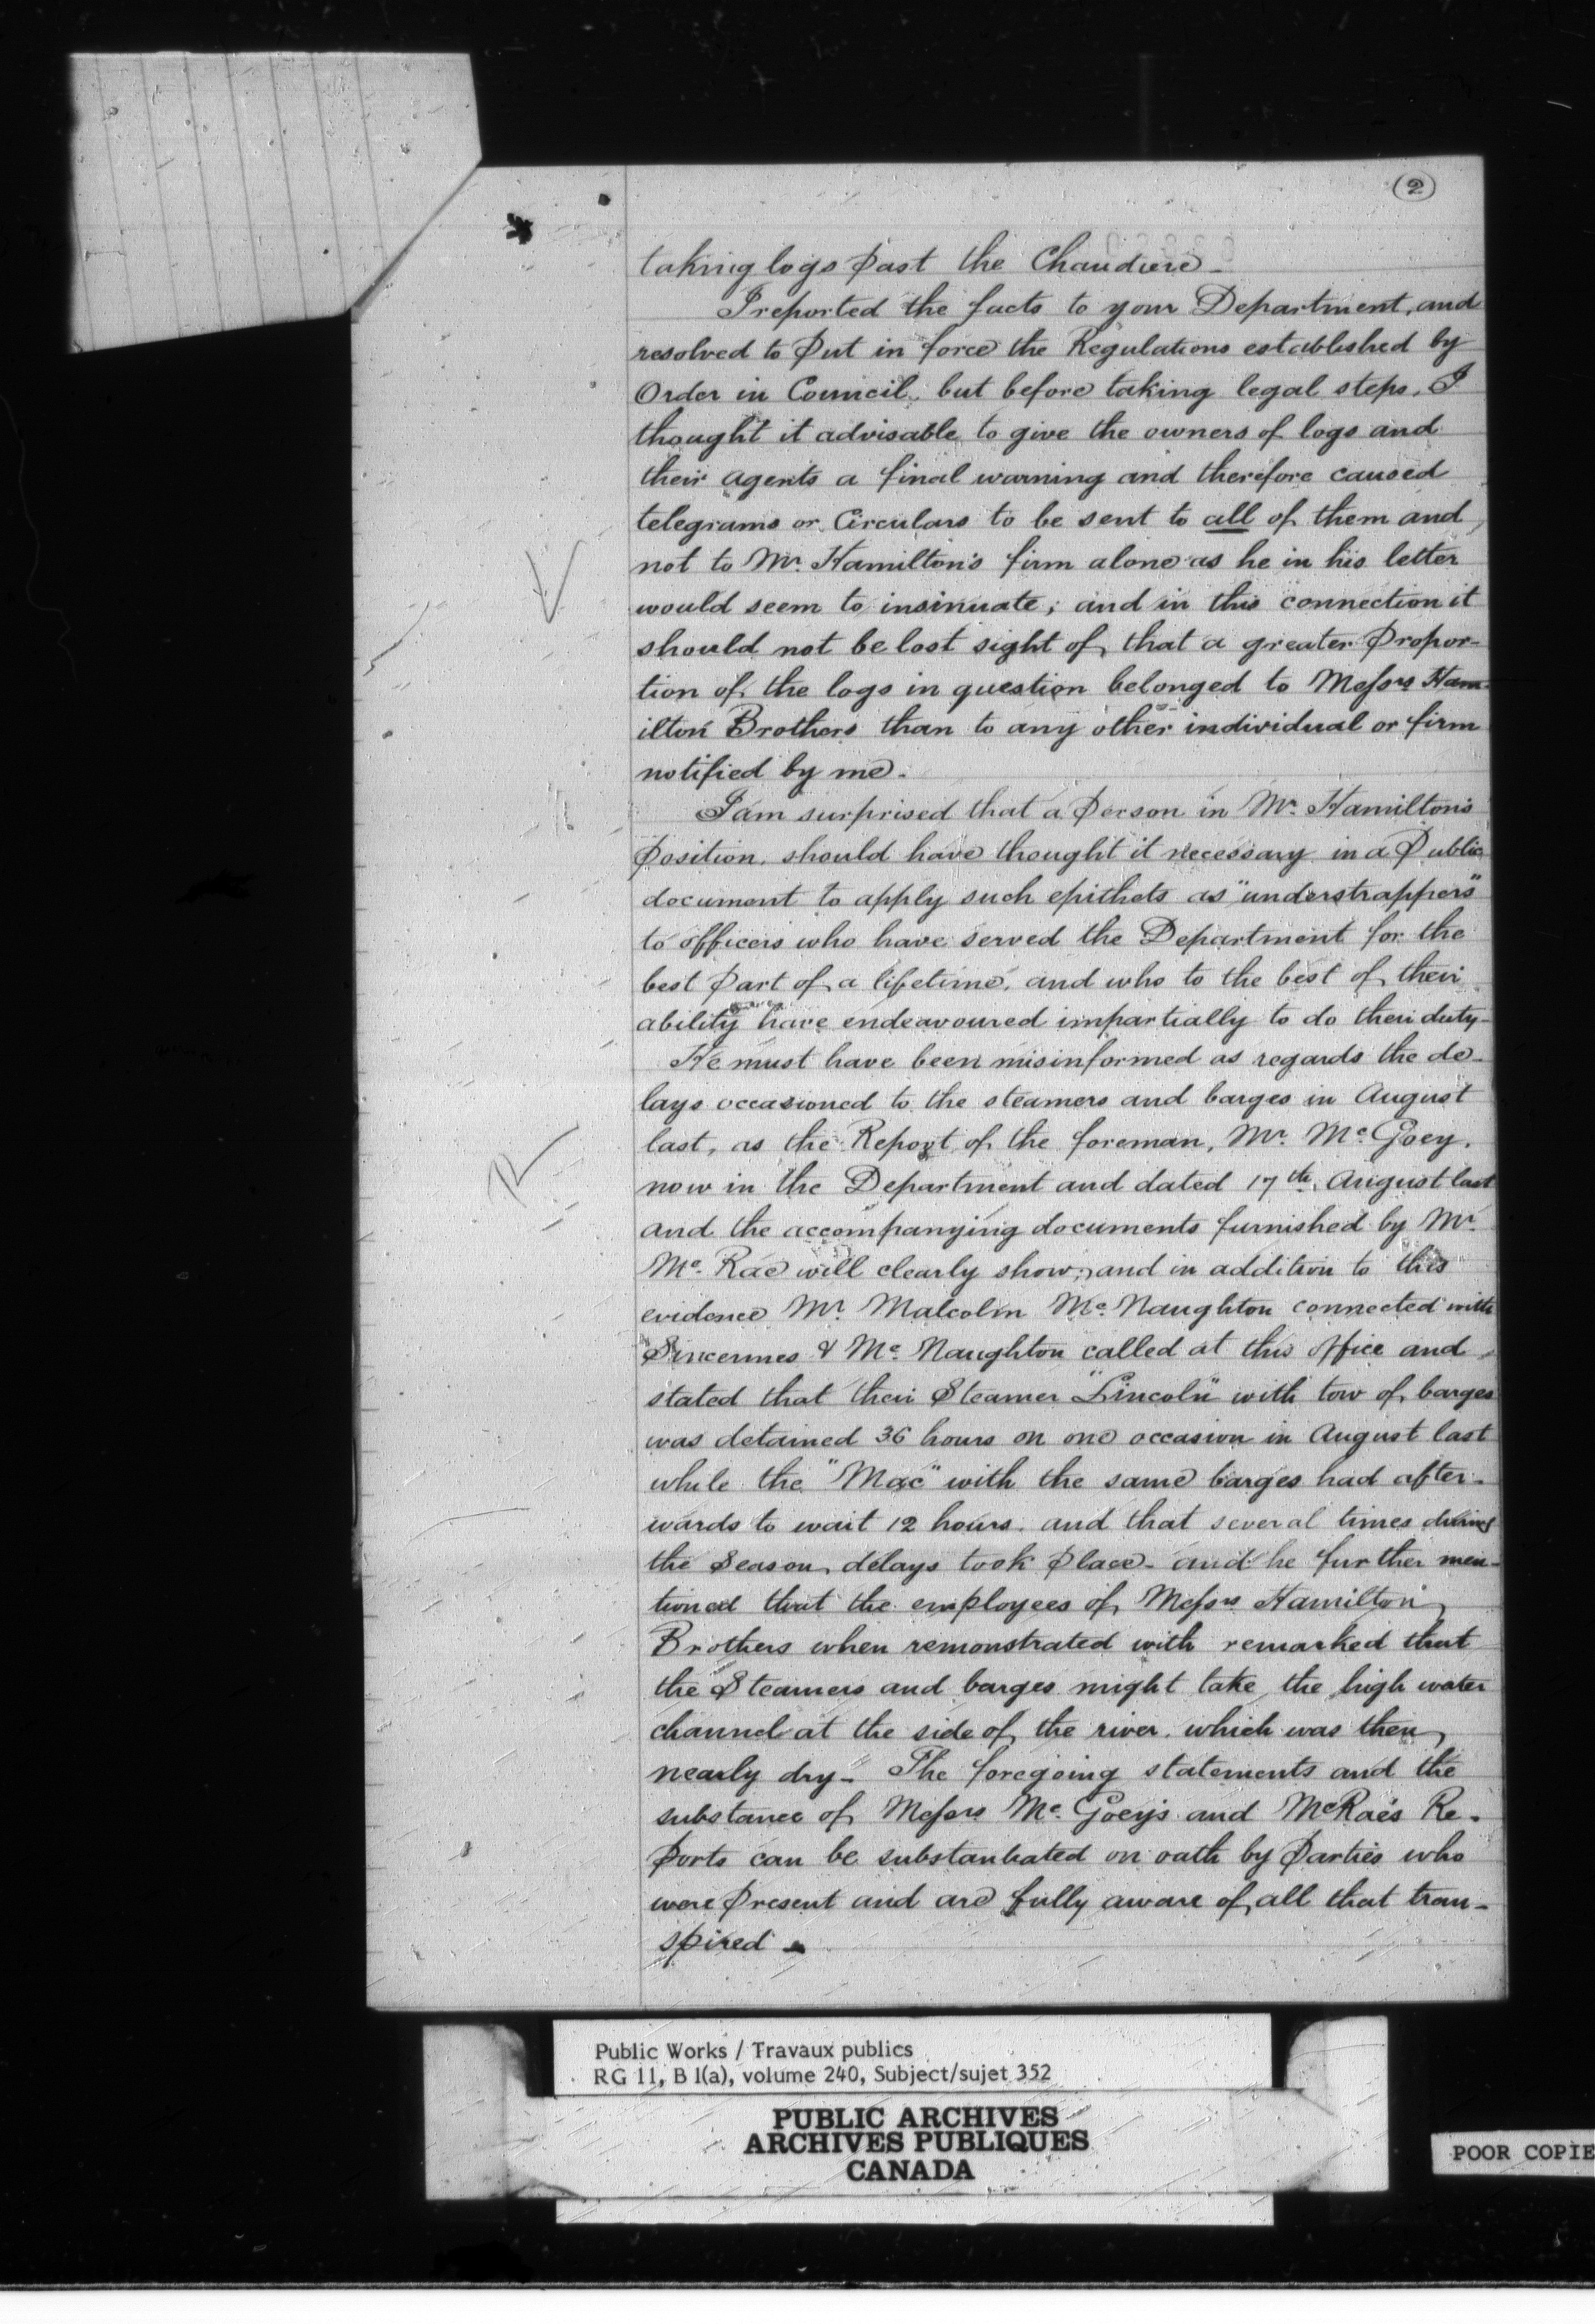 (2)
taking logs past the Chaudiere -
I reported the facts to your Department, and
resolved to put in force the Regulations established by
Order in Council, but before taking legal steps, I
thought it advisable to give the owners of logs and
their agents a final warning and therefore caused
telegrams or Circulars to be sent to all of them and
not to Mr. Hamilton's firm alone as he in his letter
would seem to insinuate; and in this connection it
should not be lost sight of, that a greater propor-
tion of the logs in question belonged to Messrs Ham-
ilton Brothers than to any other individual or firm
notified by me.
I am surprised that a person in Mr. Hamilton's
position, should have thought it necessary in a Public
document to apply such epithets as "understrappers"
to officers who have served the Department for the
best part of a lifetime, and who to the best of their
ability have endeavoured impartially to do their duty -
He must have been misinformed as regards the de-
lays occasioned to the steamers and barges in August
last, as the Report of the foreman, Mr. McGoey,
now in the Department and dated 17th August last
and the accompanying documents furnished by Mr.
McRae will clearly show; and in addition to this
evidence Mr. Malcolm McNaughton connected with
Sincennes & McNaughton called at this office and
stated that their Steamer "Lincoln" with tow of barges
was detained 36 hours on one occasion in August last
while the "Mac" with the same barges had after-
wards to wait 12 hours, and that several times during
the Season, delays took place - and he further men-
tioned that the employees of Messrs Hamilton
Brothers when remonstrated with remarked that
the Steamers and barges might take the high water
channel at the side of the river, which was then
nearly dry - The foregoing statements and the
substance of Messrs McGoey's and McRae's Re-
ports can be substantiated on oath by parties who
were present and are fully aware of all that tran-
spired -
Public Works / Travaux publics
RG 11, B 1(a), volume 240, Subject/sujet 352
PUBLIC ARCHIVES
ARCHIVES PUBLIQUES
CANADA
POOR COPIE